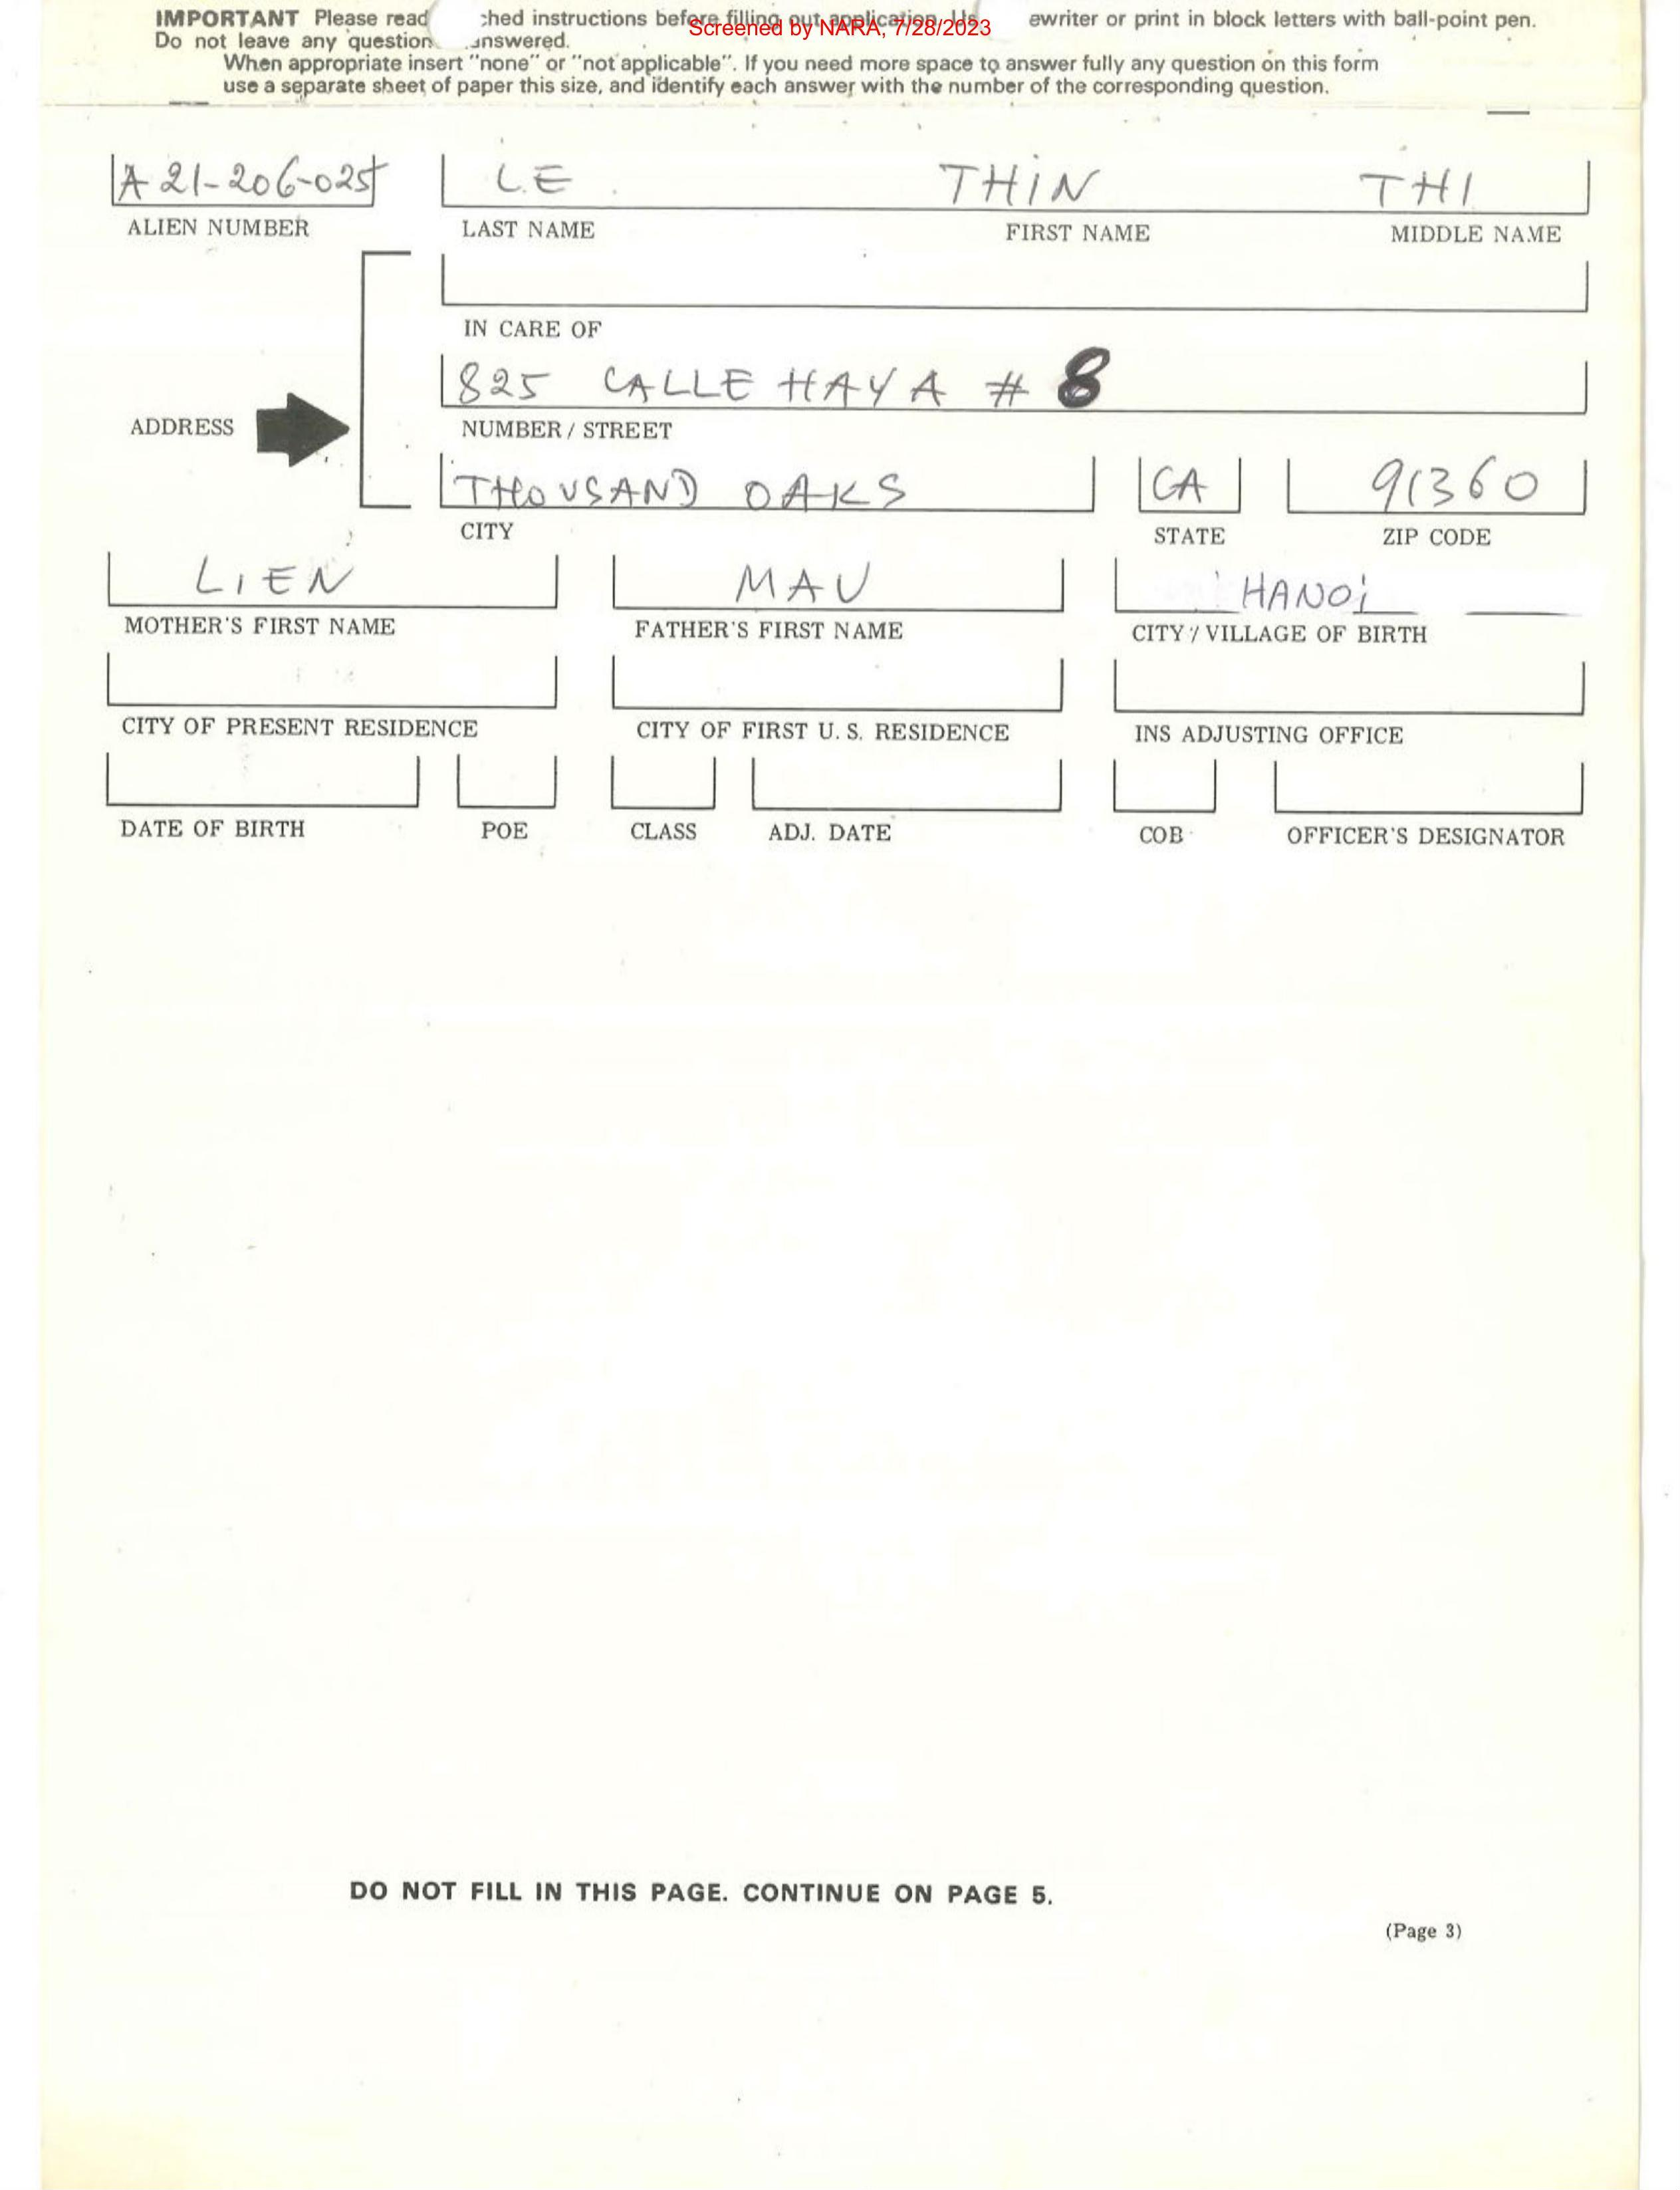 IMPORTANT Please read ched instructions before filling out application. Us ewriter or print in block letters with ball-point pen.
Screened by NARA, 7/28/2023
Do not leave any question answered.
When appropriate insert "none" or "not applicable". If you need more space to answer fully any question on this form
use a separate sheet of paper this size, and identify each answer with the number of the corresponding question.
A 21-206-025 LE THIN THI
ALIEN NUMBER LAST NAME FIRST NAME MIDDLE NAME
IN CARE OF
825 CALLE HAYA # 8
ADDRESS NUMBER / STREET
THOUSAND OAKS CA 91360
CITY STATE ZIP CODE
LIEN MAU HANOI
MOTHER'S FIRST NAME FATHER'S FIRST NAME CITY / VILLAGE OF BIRTH
CITY OF PRESENT RESIDENCE CITY OF FIRST U. S. RESIDENCE INS ADJUSTING OFFICE
DATE OF BIRTH POE CLASS ADJ. DATE COB OFFICER'S DESIGNATOR
DO NOT FILL IN THIS PAGE. CONTINUE ON PAGE 5.
(Page 3)